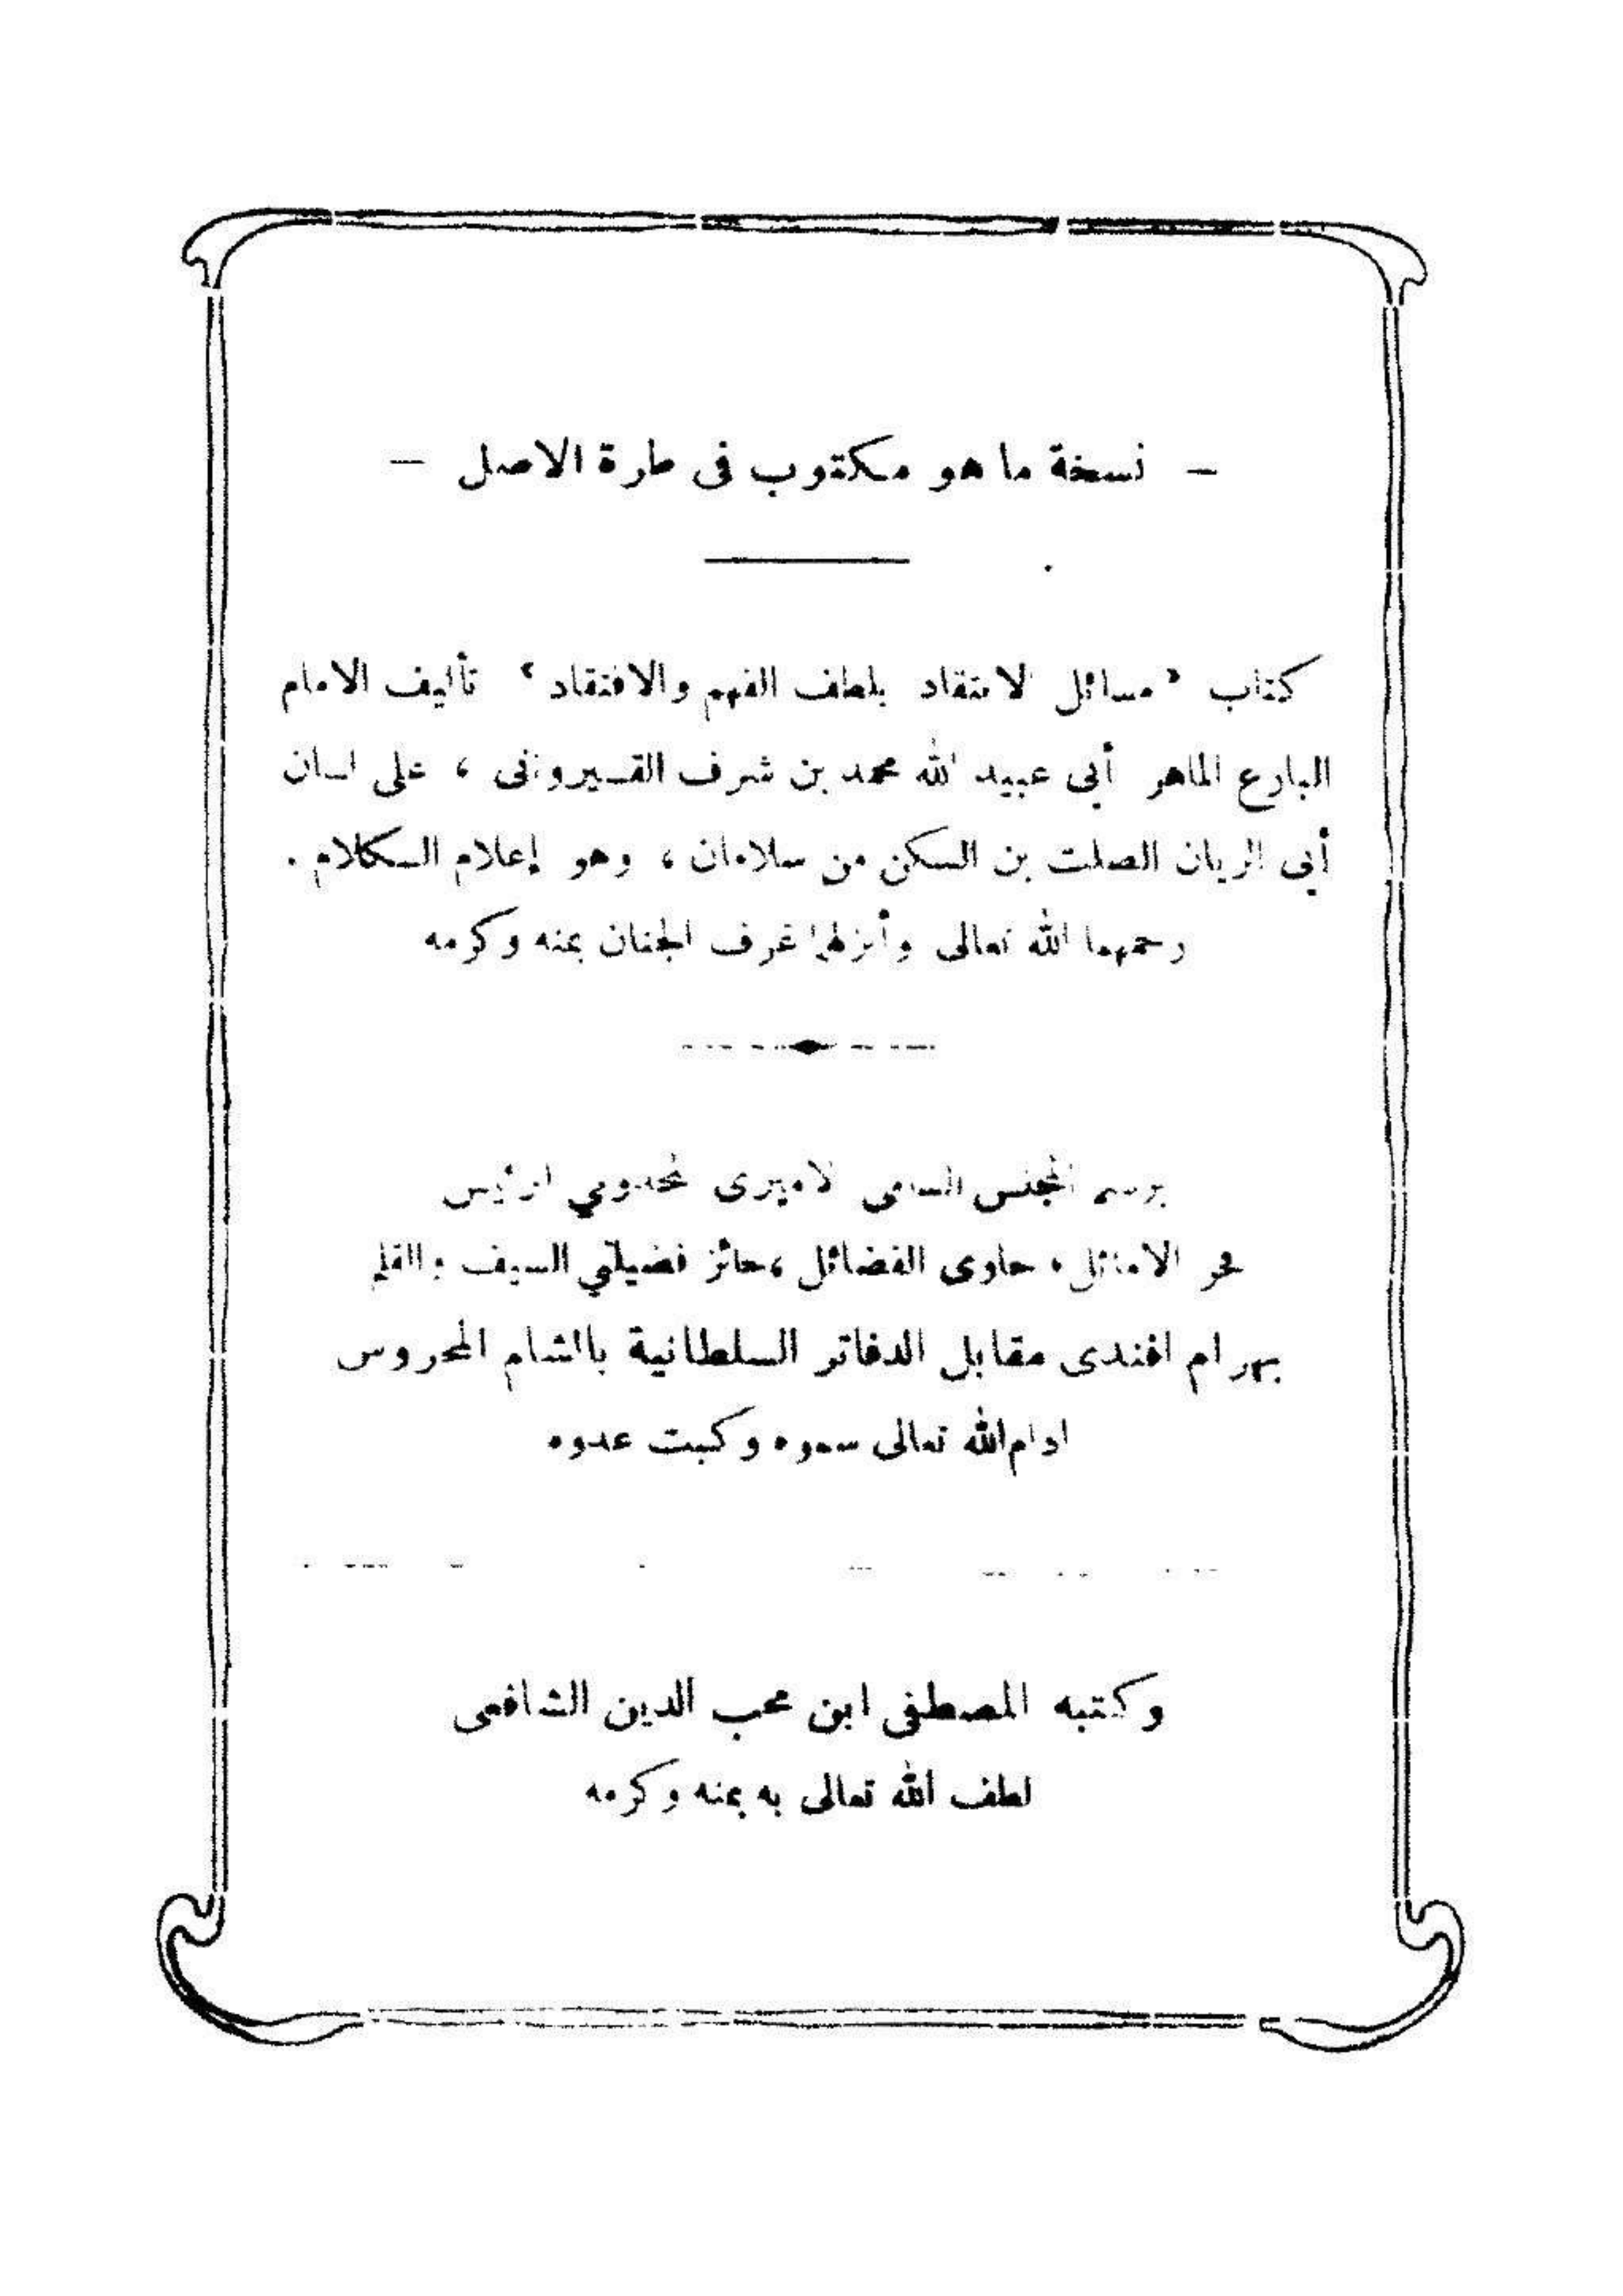 — نسخة ما هو مكتوب فى طرة الاصل —
كتاب « مسائل الانتقاد بلطف الفهم والافتقاد » تأليف الامام
البارع الماهر أبى عبيد الله محمد بن شرف القيروانى ، على لسان
أبى الريان الصلت بن السكن من سلامان ، وهو إعلام الكلام .
رحمهما الله تعالى وأنزلهما غرف الجنان بمنه وكرمه
برسم المجلس السامى الاميرى المخدومي الرئيس
فخر الاماثل ، حاوى الفضائل ، حائز فضيلتي السيف والقلم
بهرام افندى مقابل الدفاتر السلطانية بالشام المحروس
ادام الله تعالى سموه وكبت عدوه
وكتبه المصطفى ابن محب الدين الشافعى
لطف الله تعالى به بمنه وكرمه